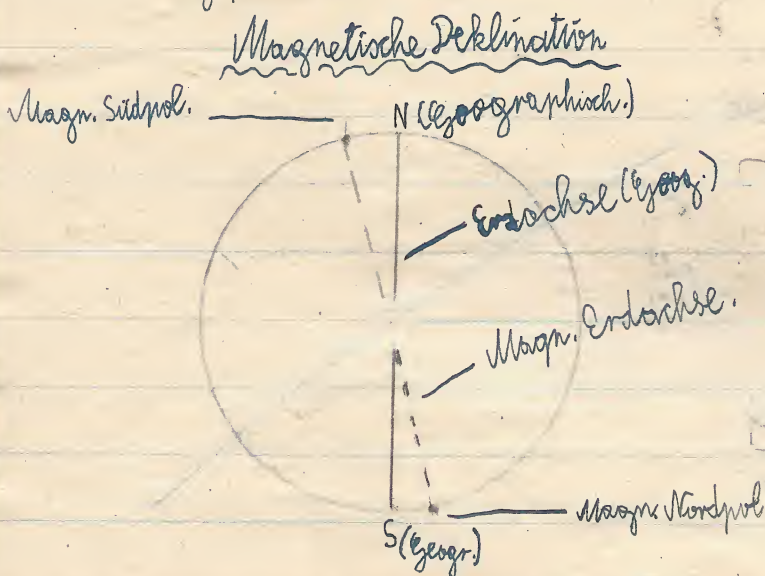 Magnetische Deklination
Magn. Südpol.
N (Geographisch.)
Erdachse (Geog.)
Magn. Erdachse.
Magn. Nordpol
S (Geogr.)